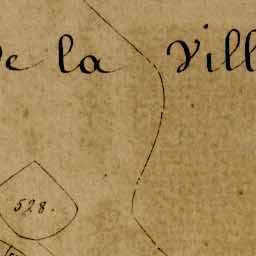 De la Vill
528.